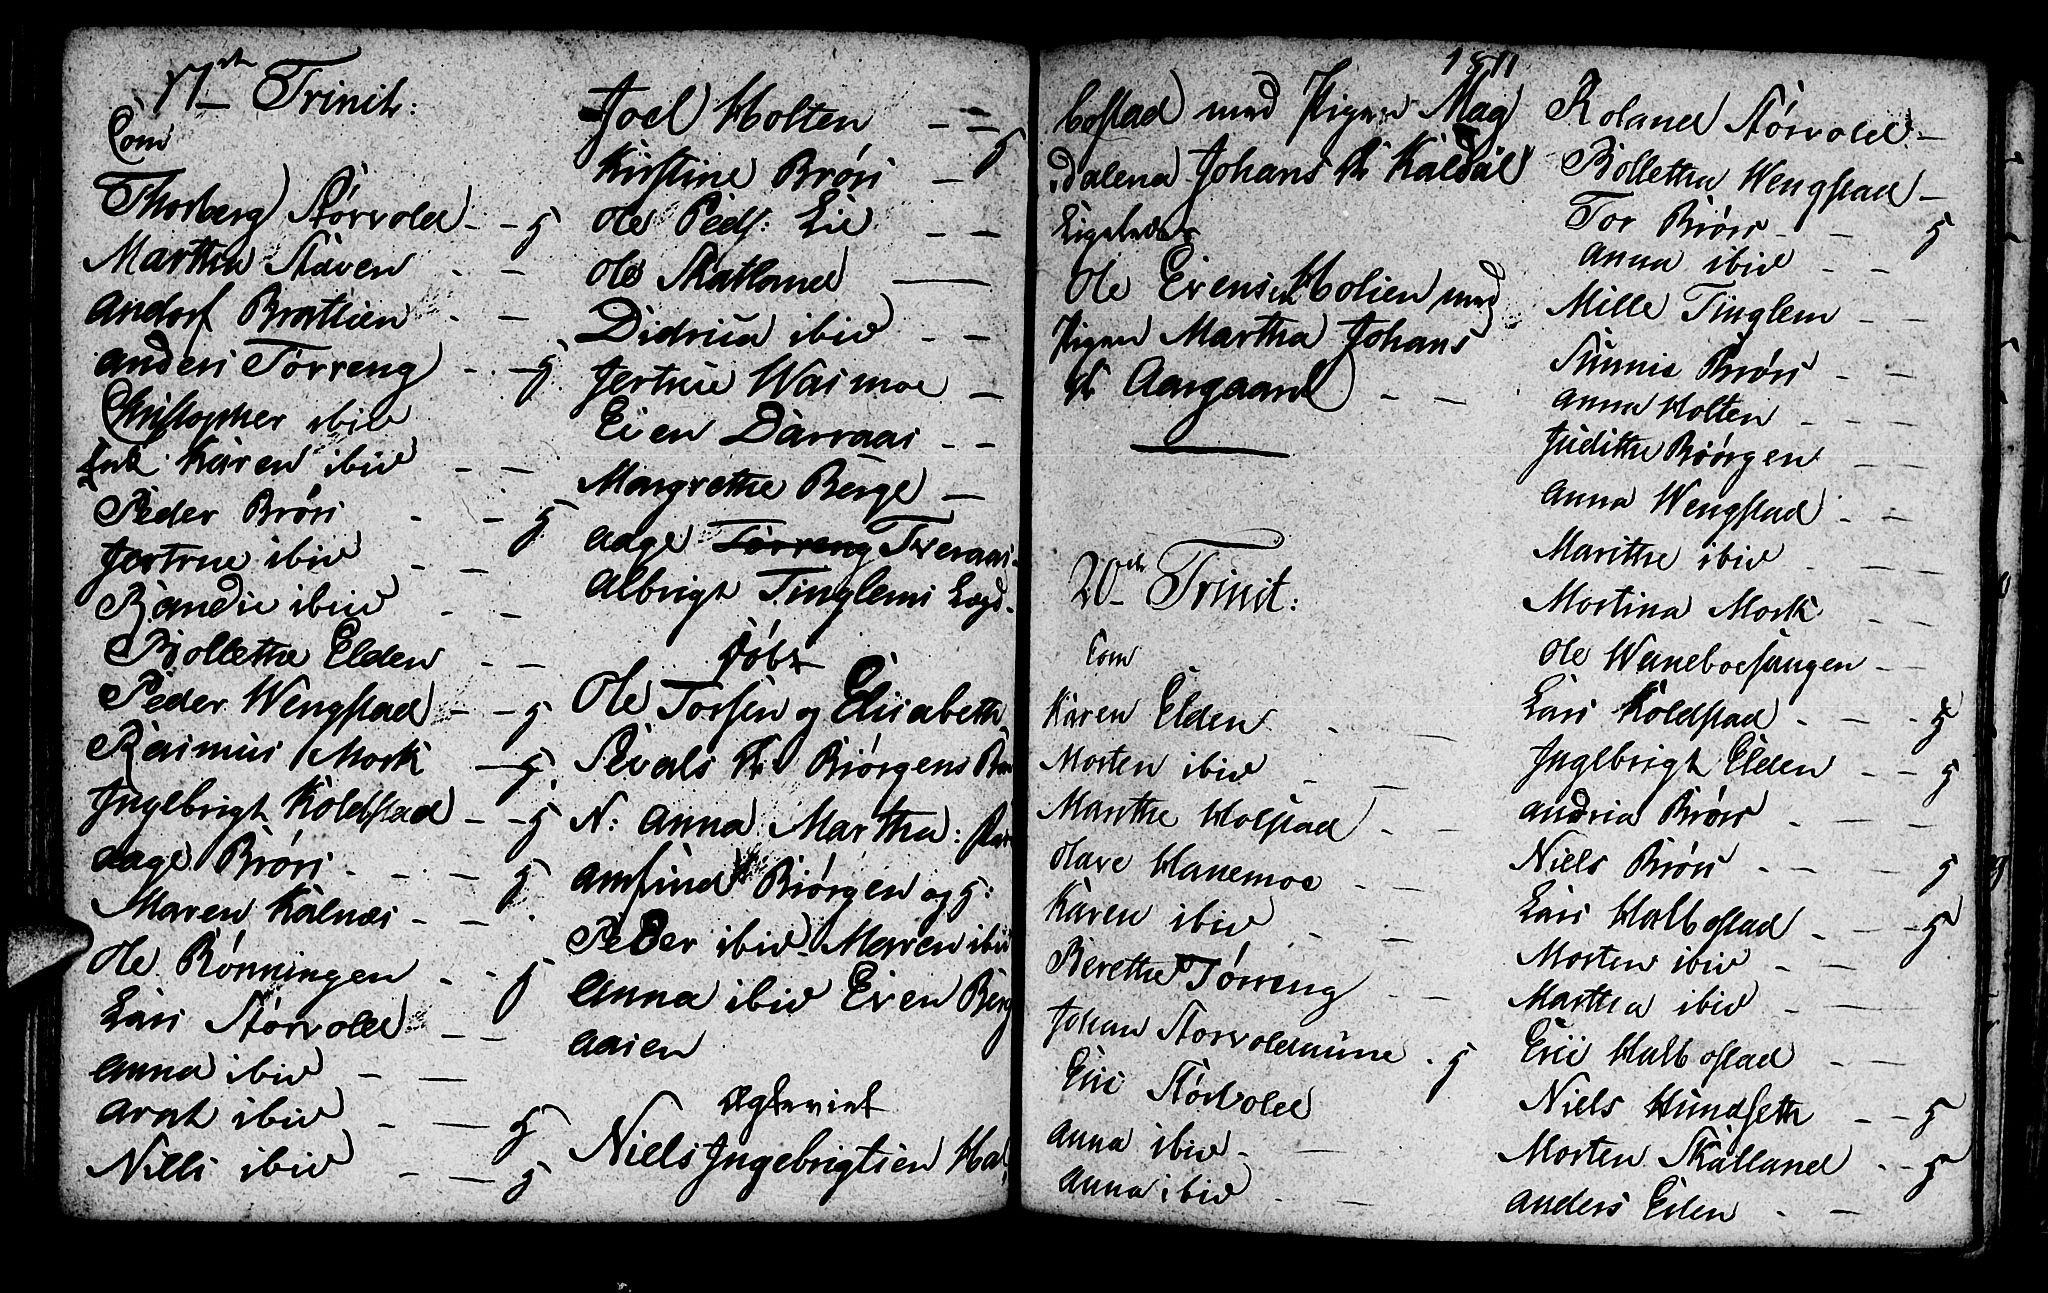 17de Trinit:
Com
Thorberg Størvold - - 5
Martha Staven - -
Andorf Brattien - -
Anders Tørreng - - 5
Christopher ibid
Enk Karen ibid - -
Peder Brørs - - 5
Jertrue ibid - -
Randie ibid - -
Bollethe Elden - -
Peder Wengstad - - 5
Rasmus Mork - 5
Ingebrigt Koldstad - - 5
Aage Brørs - - - 5
Maren Kalnæs - -
Ole Rønningen - - 5
Lars Størvold - -
Anna ibid - -
Arnt ibid - - 5
Niels ibid - - 5
Joel Holten - - 5
Kirstine Brørs -
Ole Peds: Lie - -
Ole Skatland -
Didrica ibid - -
Jertrue Wasmoe -
Even Darraas - -
Margrethe Berge -
Aage Tørreng Tveraas -
Albrigt Tinglems Lægd -
Døbt
Ole Torsen og Elisabeth
Sivals Dr Biørgens
N: Anna Martha:
Amfind Biørgen og 5:
Peder ibid Maren ibid
Anna ibid Even Berg
aasen
Ægteviet
Niels Ingebrigtsen Hal
1811
bostad med Pigen Mag
dalena Johans Dr Kaldal
Ligeledes
Ole Evensen Holien med
Pigen Martha Johans
Dr Aargaard - -
20de Trinit:
Com
Karen Elden - -
Morten ibid - -
Marthe Holstad - -
Olave Hanemoe - -
Karen ibid - -
Berethe Tørreng - -
Johan Storvoldaune - 5
Eric Størvold
Anna ibid - -
Anna ibid - -
Roland Størvold -
Bollethe Wengstad -
Tor Brørs - - 5
Anna ibid - -
Mille Tinglem - -
Sunnis Brørs - -
Anna Holten - - -
Judithe Biørgen - -
Anna Wengstad - -
Marithe ibid - - -
Mortina Mork - -
Ole Waneboesaugen -
Lars Koldstad - - - 5
Ingebrigt Elden - - 5
Andria Brørs - - -
Niels Brørs - - 5
Lars Halbostad - - 5
Morten ibid - -
Martha ibid - -
Eric Halbostad - -
Niels Hundseth - - 5
Morten Skatland - - 5
Anders Eilen - -